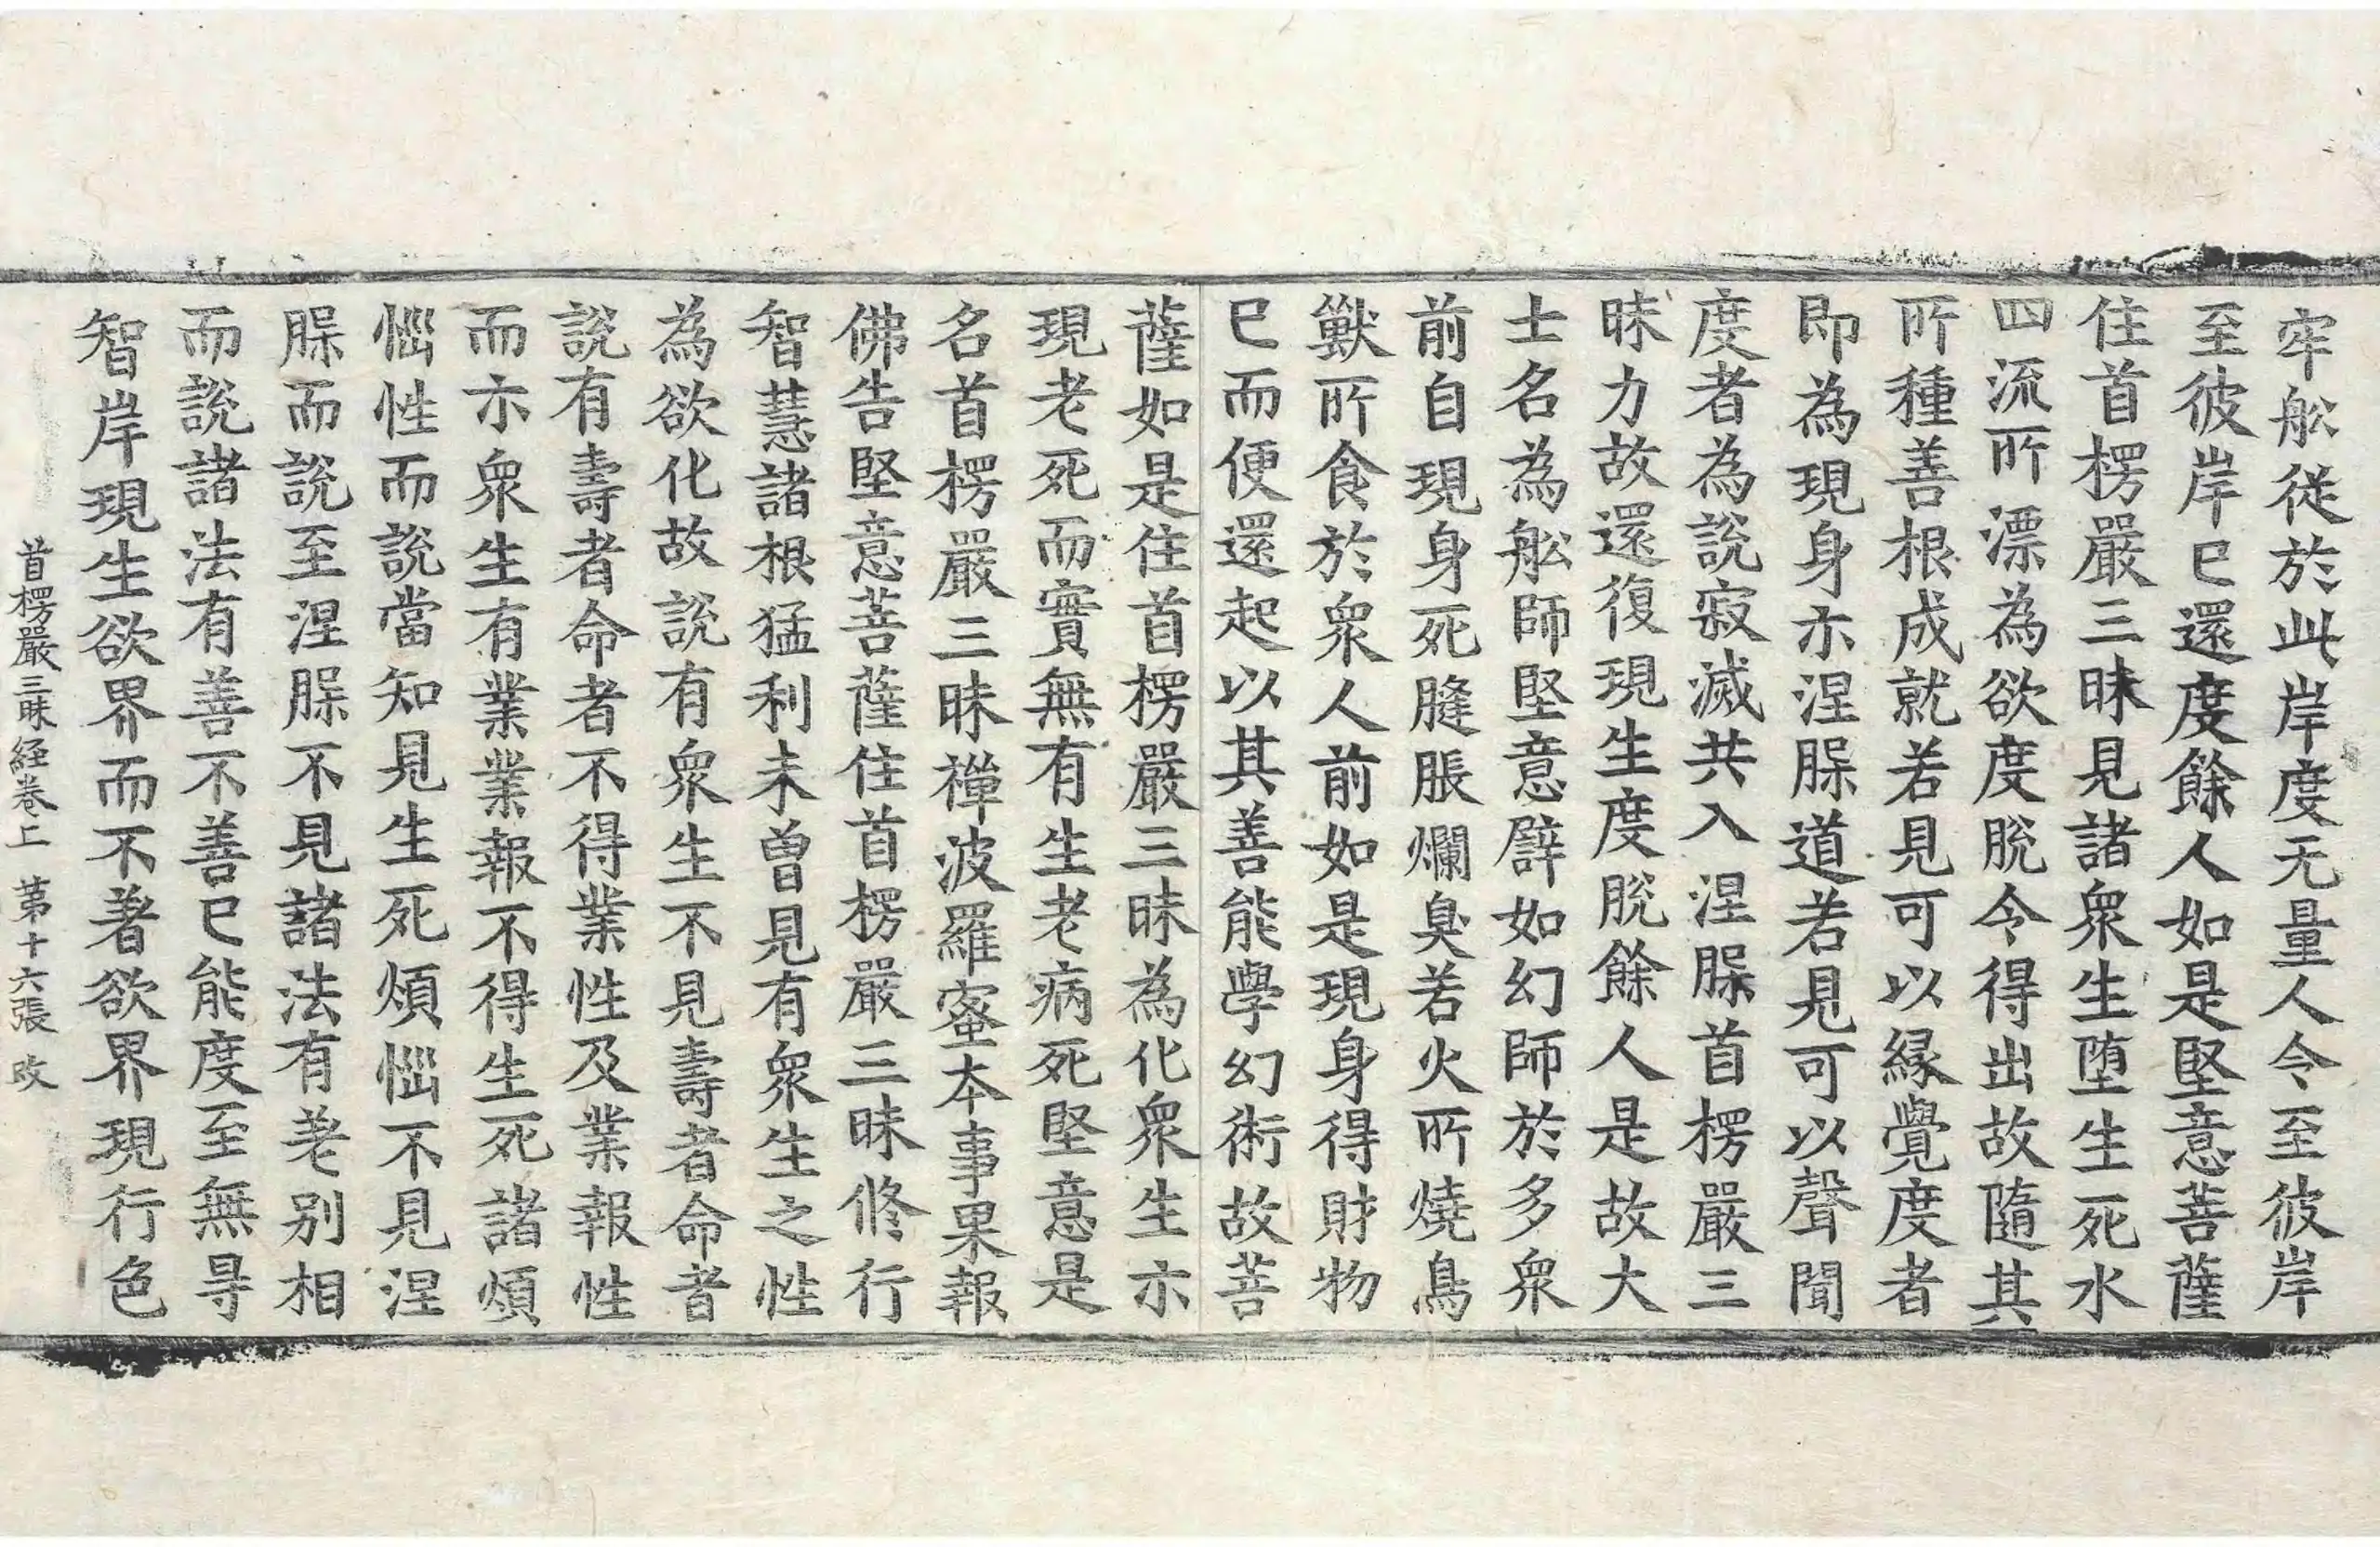 牢舩従於此岸度无量人令至彼岸
至彼岸已還度餘人如是堅意菩薩
住首楞嚴三昧見諸衆生堕生死水
四流所漂為欲度脫令得出故隨其
所種善根成就若見可以緣覺度者
即為現身示涅脲道若見可以聲聞
度者為說寂滅共入涅脲首楞嚴三
昧力故還復現生度脫餘人是故大
士名為舩師堅意譬如幻師於多衆
前自現身死膖脹爛臭若火所燒鳥
獸所食於衆人前如是現身得財物
已而便還起以其善能學幻術故菩
薩如是住首楞嚴三昧為化衆生示
現老死而實無有生老病死堅意是
名首楞嚴三昧禪波羅蜜本事果報
佛告堅意菩薩住首楞嚴三昧修行
智慧諸根猛利未曾見有衆生之性
為欲化故說有衆生不見壽者命者
說有壽者命者不得業性及業報性
而示衆生有業業報不得生死諸煩
惱性而說當知見生死煩惱不見涅
脲而說至涅脲不見諸法有差別相
而說諸法有善不善已能度至無㝵
智岸現生欲界而不著欲界現行色
首楞嚴三昧経卷上 第十六張 改